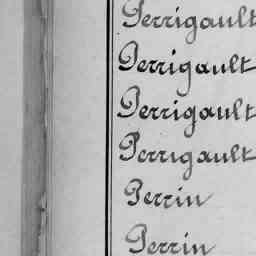 Perrigault
Perrigault
Perrigault
Perrigault
Perrin
Perrin